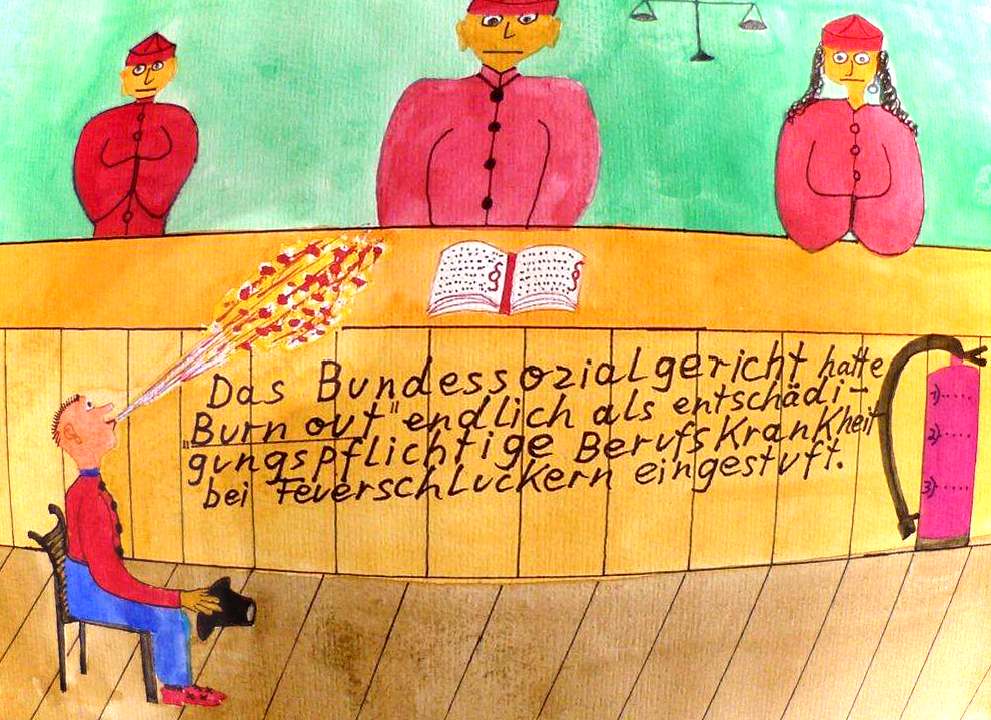 Das Bundessozialgericht hatte
"Burn out" endlich als entschädi-
gungspflichtige Berufskrankheit
bei Feuerschluckern eingestuft.
§ §
1).....
2).....
3).....